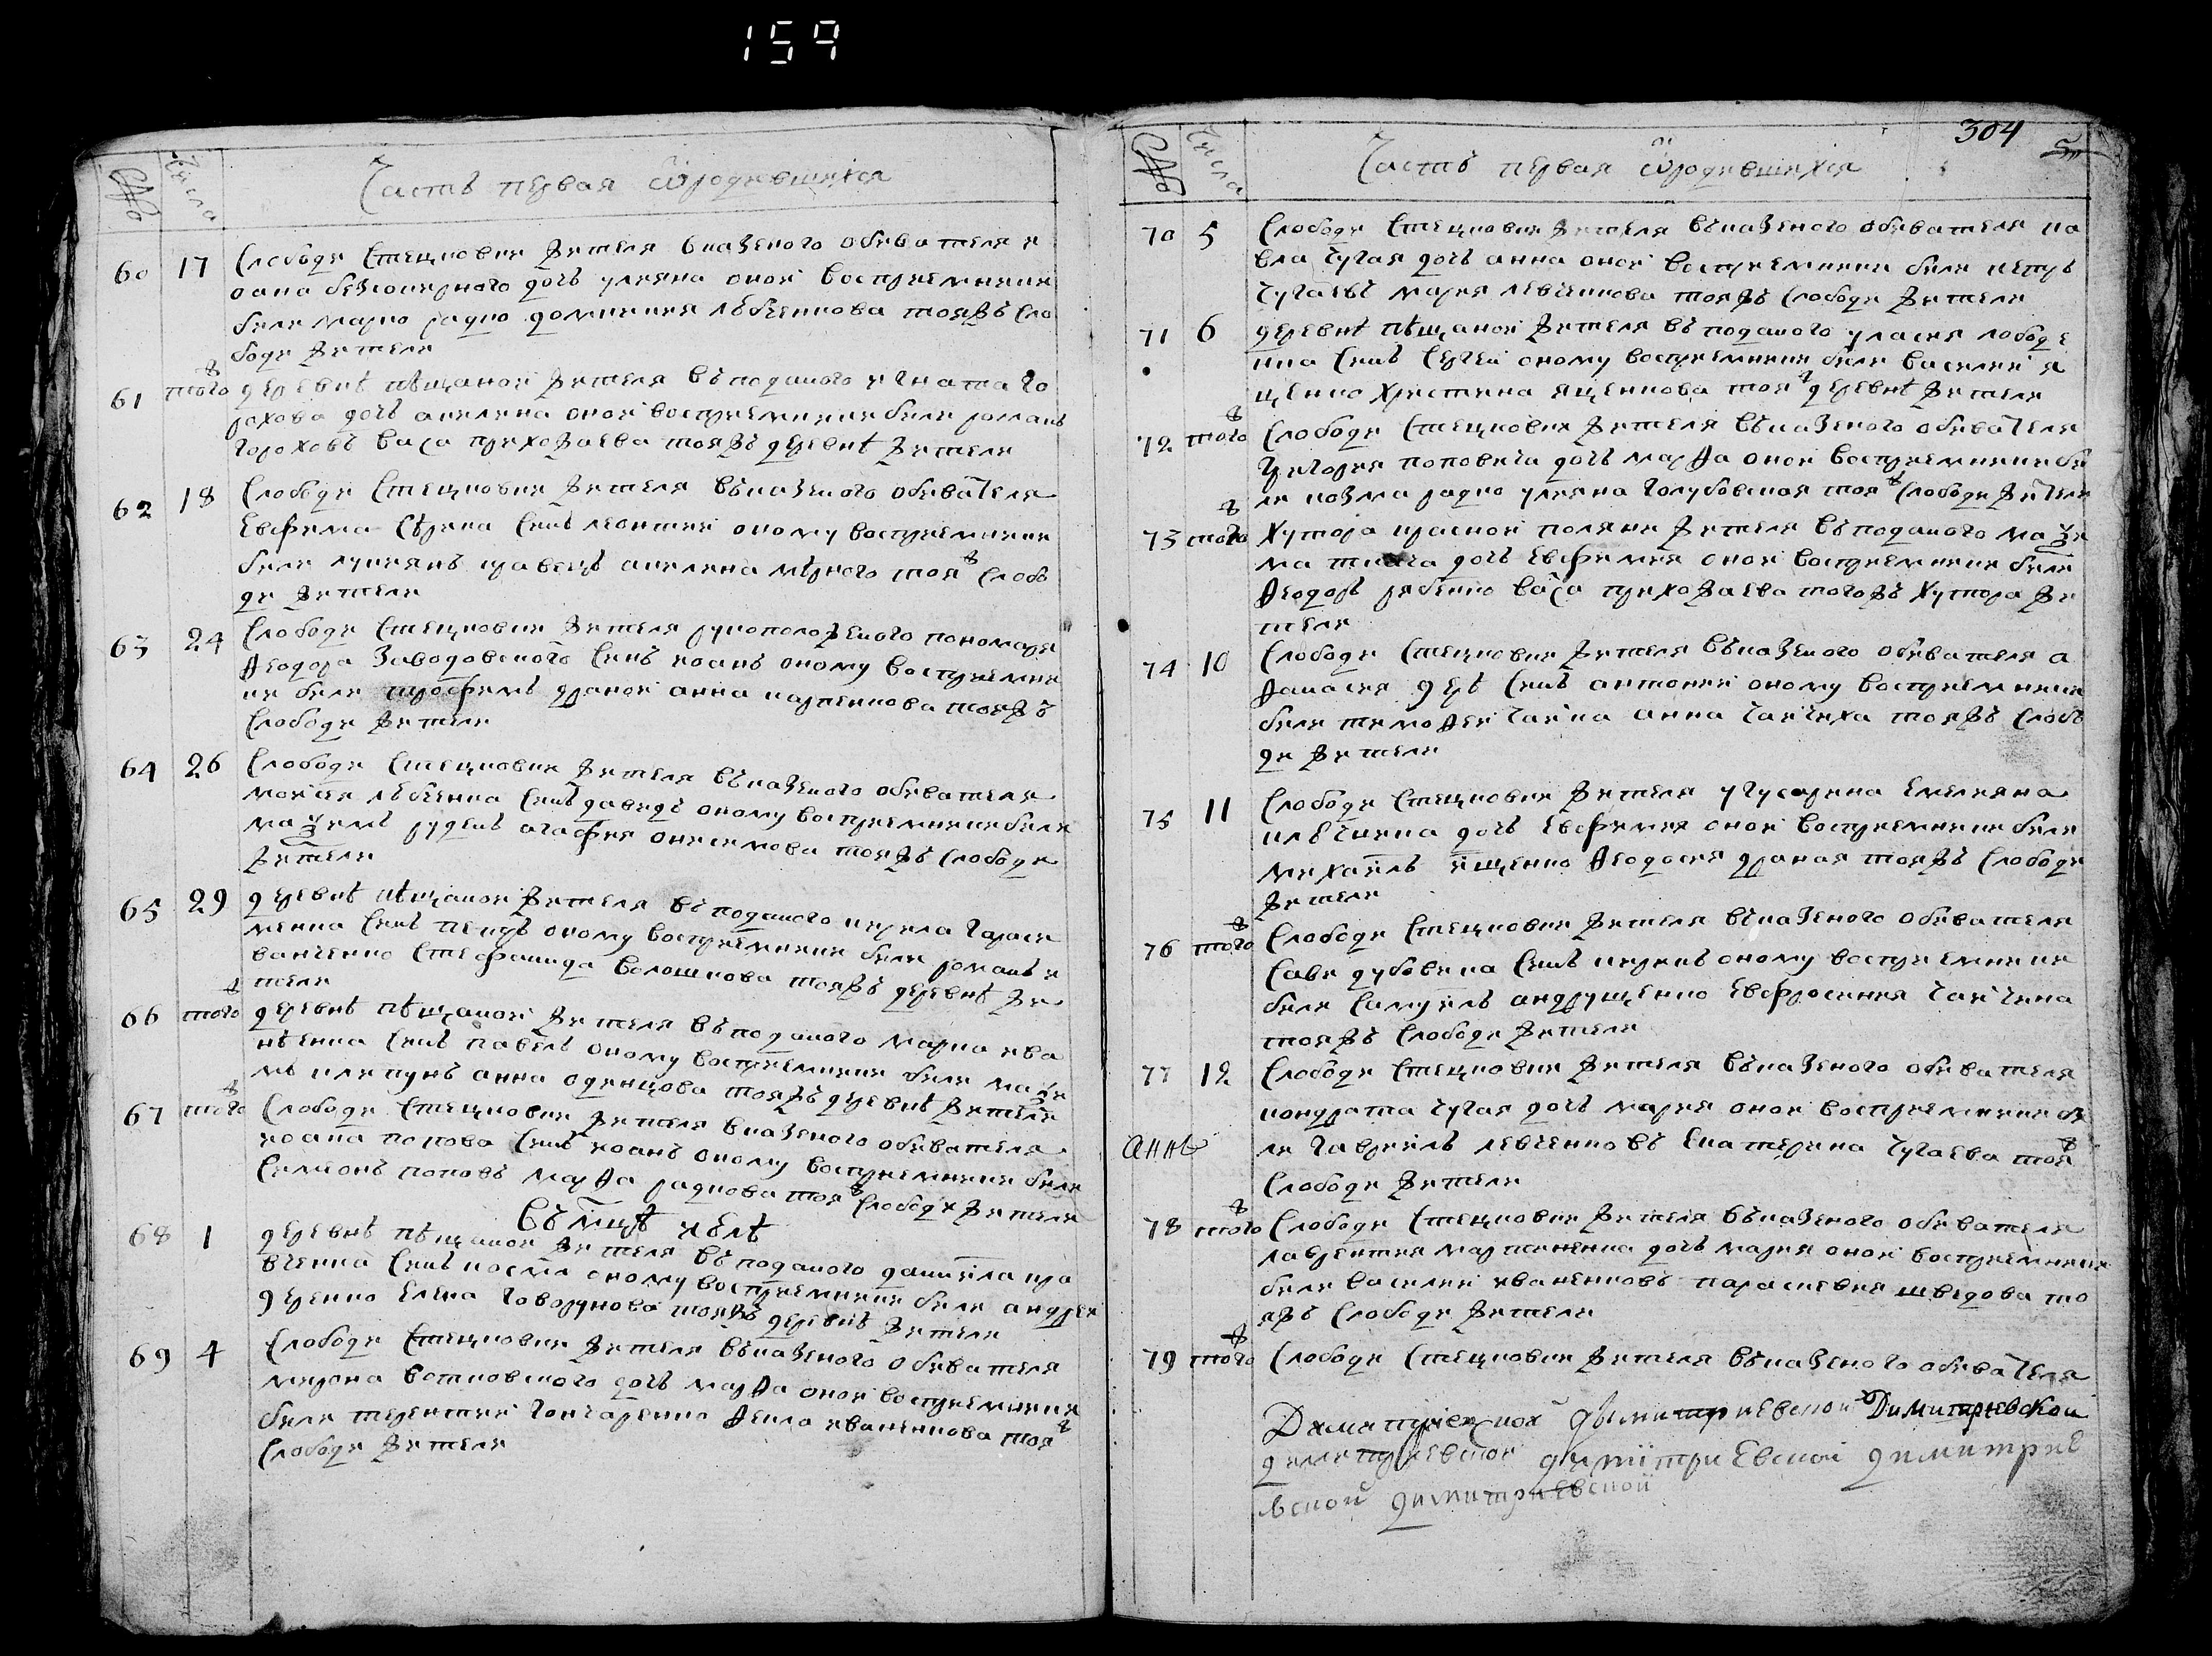 159
№ Числа Часть первая о родившихся
60 17 Слободи Стецковки жителя вказеного обивателя и
оана безкоирного дочъ улияна оной восприемники
били марко радко домникия лѣбенкова тояжъ сло
боди жители
61 тогож деревнѣ пѣщаной жителя въ поданого игната го
рохова дочъ акилина оной восприемники били романъ
гороховъ васа прихожаева тояжъ деревнѣ жители
62 18 Слободи Стецковки жителя вьказеного обивателя
Евфима сѣрика синъ леонтий оному восприемники
били лукиянъ кравецъ акилина мѣрного тояж слобо
ди жители
63 24 Слободи Стецковки жителя рукоположеного пономаря
Ѳеодора Заводовского синъ иоанъ оному восприемни
ки били трофимъ драной анна карпенкова тояжъ
слободи жители
64 26 Слободи Стецковки жителя вьказеного обивателя
мойсея лѣбенка синъ давидъ оному восприемники били
мазимъ руденъ агафия онисимова тояжъ слободи
жители
65 29 деревнѣ пѣщаной жителя въ поданого кирила гараси
менка синъ петръ оному восприемники били романъ и
ванченко стефанида волошкова тояжъ деревнѣ жи
тели
66 тогож деревнѣ пѣщаной жителя въ поданого марка ива
нѣенка синъ павелъ оному восприемники били мази
мъ клепунъ анна одинцова тояжъ деревнѣ жители
67 тогож Слободи Стецковки жителя вказеного обивателя
иоана попова синъ иоанъ оному восприемники били
симионъ поповъ марѳа радкова тояж слободи жители
въ мцѣ июлѣ
68 1 деревнѣ пѣщаной жителя въ поданого даниила кра
вченка синъ косма оному восприемники били андреи
деренко елена говорунова тояжъ деревнѣ жители
69 4 Слободи Стецковки жителя вьказеного обивателя
мирона вотковского дочъ марѳа оной восприемники
били терентий гончаренко Ѳекла иваненкова тояж
слободи жители
304
№ Числа Часть первая о родившихся
70 5 Слободи Стецковки жителя вьказеного обивателя па
вла чугая дочъ анна оной восприемники били петръ
чугаевъ мария левченкова тояжъ слободи жители
71 6 деревнѣ пѣщаной жителя въ поданого уласия лободе
нка синъ сергей оному восприемники били василий я
ценко христина яценкова тояж деревнѣ жители
72 тогож Слободи Стецковки жителя вьказеного обивателя
григория поповича дочъ марѳа оной восприемники би
ли козма радко улияна голубовская тояж слободи жители
73 тогож Хутора красной поляни жителя въ поданого мази
ма ткача дочъ евфимия оной восприемники били
Ѳеодоръ рябенко васа прихожаева тогожъ хутора жи
тели
74 10 Слободи Стецковки жителя вьказеного обивателя а
ѳанасия деръ синъ антоний оному восприемники
били тимоѳей чайка анна чайчиха тояжъ слобо
ди жители
75 11 Слободи Стецковки жителя угусарина емелияна
илѣчика дочъ евфимия оной восприемники били
михаилъ ященко Ѳеодосия драная тояжъ слободи
жители
76 тогож Слободи Стецковки жителя вьказеного обивателя
сави дубовика синъ кирикъ оному восприемники
били самуилъ андрущенко евфросиния чайчина
тояжъ слободи жители
77 12 Слободи Стецковки жителя вьказеного обивателя
кондрата чугая дочъ мария оной восприемники би
Аннѣ ли гавриилъ левченковъ екатерина чугаева тояж
слободи жители
78 тогож Слободи Стецковки жителя вьказеного обивателя
лаврентия мартиненка дочъ мария оной восприемники
били василий иваненковъ параскевия шведова то
яжъ слободи жители
79 тогож Слободи Стецковки жителя вьказеного обивателя
димитриевской Димитриевской
димитриевской димитриевской димитрие
вской димитриевской